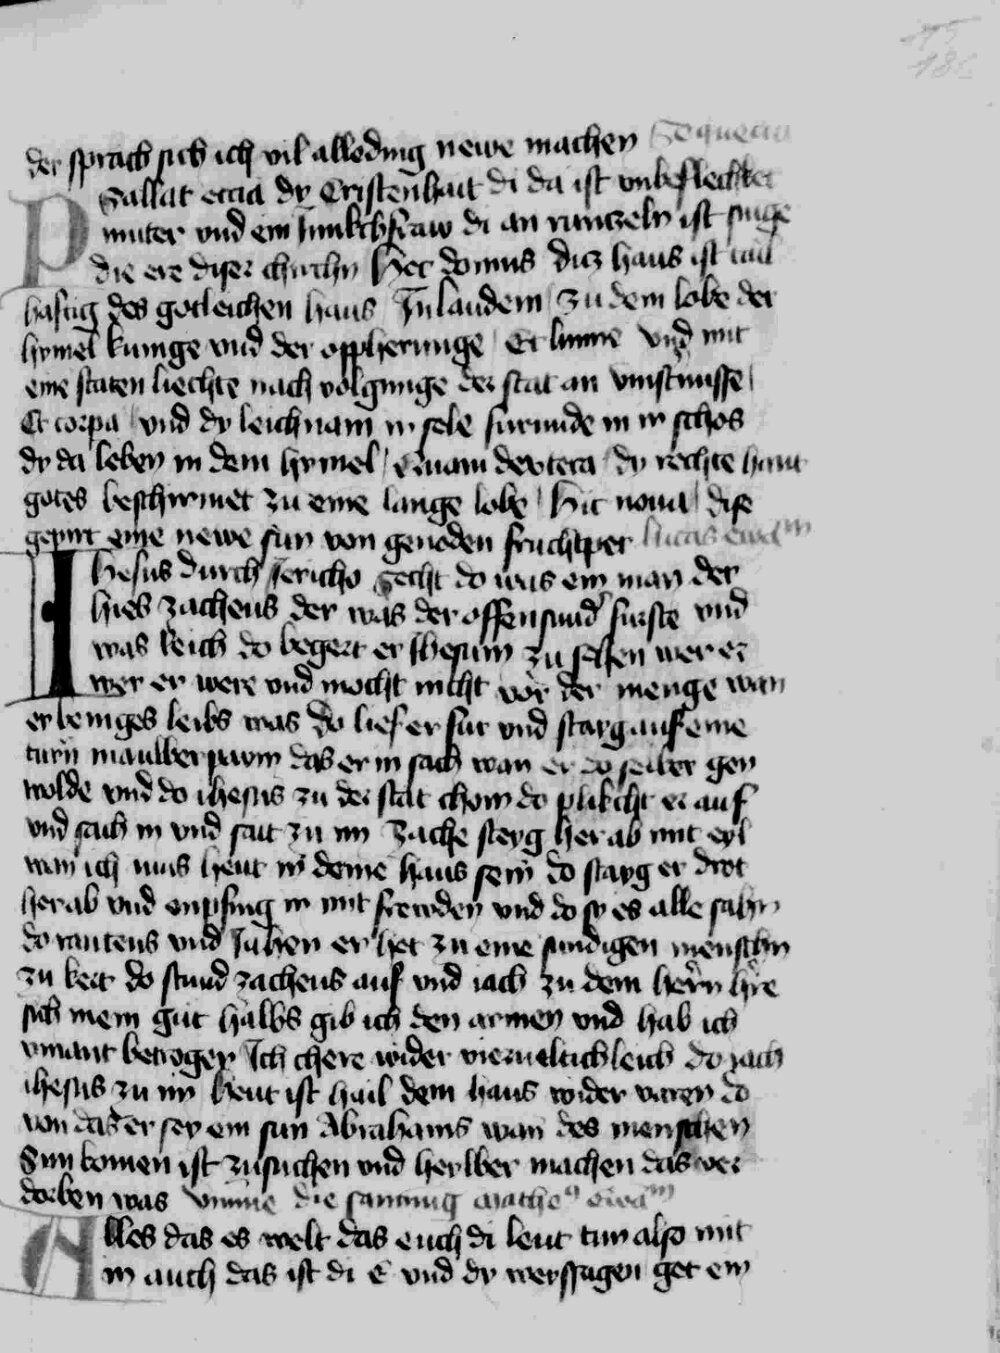 der sprach sich ich vil alleding newe machen Sequentia
Psallat eccia dy Cristenhait di da ist vnbeflechket
muter vnd ein Junkchfraw di an runtzeln ist singe
die ere diser chirchn Hec domus dicz haus ist tail
haftig des gotleichen haus In laudem zu dem lobe der
hymel kunige vnd der oppherunge Et lumine vnd mit
eine staten liechte nach volgunge der stat an vinstnusse
Et corpa vnd dy leichnam in sele furunde in ir schos
dy da leben in dem hymel Quam dextera dy rechte hant
gotes beschirmet zu eine lange lobe Hic noua dise
gepirt eine newe sun von genoden fruchtper lucas ewam
Ihesus durch Jericho gecht do was ein man der
hies zacheus der was der offen sund furste vnd
was Reich do begert er Ihesum zu sehen wer er
wer er were vnd mocht nicht vor der menge wan
er beniges leibs was do lief er fur vnd stayg auf eine
turn maulberpawm das er in sach wan er do selber gen
wolde vnd do ihesus zu der stat chom do plikcht er auf
vnd sach in vnd sait zu im Zache steyg her ab mit eyl
wan ich mus heut in deine haus sein do stayg er drot
her ab vnd enpfing in mit frewden vnd do sy es alle sahn
do rautens vnd Jahen er het zu eine sundigen menschn
zu kert do stund zacheus auf vnd iach zu dem hern hre
sich mein gut halbs gib ich den armen vnd hab ich
ymant betrogen Ich chere wider vierueltichleich do iach
ihesus zu im heut ist hail dem haus wider varen do
von das er sey ein sun Abrahams wan des menschen
Sun komen ist zusuchen vnd heylber machen das ver
dorben was die samnug Mathe9 ewam
Alles das es welt das euch di leut tun also mit
in auch das ist di E vnd dy weyssagen get ein